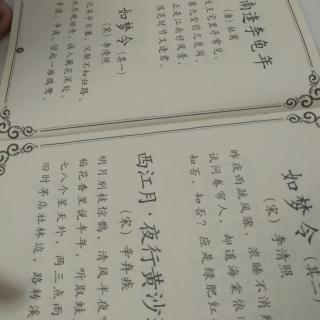 南逢李龟年
（唐）杜甫
王宅里寻常见，
九堂前几度闻。
是江南好风景，
花时节又逢君。
如梦令（其一）
（宋）李清照
记溪亭日暮，沉醉不知归路。
尽晚回舟，误入藕花深处。
争渡，争渡，惊起一滩鸥鹭。
如梦令（其二）
（宋）李清照
昨夜雨疏风骤，浓睡不消残
试问卷帘人，却道海棠依旧
知否，知否？应是绿肥红
西江月·夜行黄沙
（宋）辛弃疾
明月别枝惊鹊，清风半夜鸣
稻花香里说丰年，听取蛙
七八个星天外，两三点雨
旧时茅店社林边，路转溪